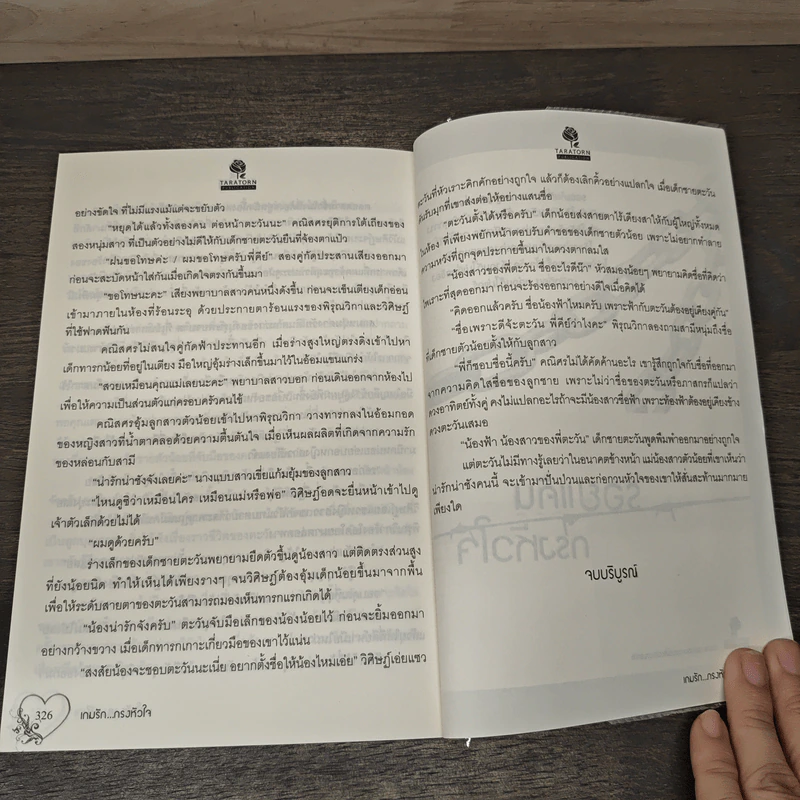 TARATORN
อย่างขัดใจ ที่ไม่มีแรงแม้แต่จะขยับตัว
"หยุดได้แล้วทั้งสองคน ต่อหน้าตะวันนะ" คณิสศรยุติการโต้เถียงของ
สองหนุ่มสาว ที่เป็นตัวอย่างไม่ดีให้กับเด็กชายตะวันยืนที่จ้องตาแป๋ว
"ฝนขอโทษค่ะ / ผมขอโทษครับพี่คีย์" สองคู่กัดประสานเสียงออกมา
ก่อนจะสะบัดหน้าใส่กันเมื่อเกิดใจตรงกันขึ้นมา
"ขอโทษนะคะ" เสียงพยาบาลสาวคนหนึ่งดังขึ้น ก่อนจะเข็นเตียงเด็กอ่อน
เข้ามาภายในห้องที่ร้อนระอุ ด้วยประกายตาร้อนแรงของพิรุณวิกาและวิศิษฏ์
ที่ใช้ฟาดฟันกัน
คณิสศรไม่สนใจคู่กัดฟ้าประทานอีก เมื่อร่างสูงใหญ่ตรงดิ่งเข้าไปหา
เด็กทารกน้อยที่อยู่ในเตียง มือใหญ่อุ้มร่างเล็กขึ้นมาไว้ในอ้อมแขนแกร่ง
"สวยเหมือนคุณแม่เลยนะคะ" พยาบาลสาวบอก ก่อนเดินออกจากห้องไป
เพื่อให้ความเป็นส่วนตัวแก่ครอบครัวคนไข้
คณิสศรอุ้มลูกสาวตัวน้อยเข้าไปหาพิรุณวิกา วางทารกลงในอ้อมกอด
ของหญิงสาวที่น้ำตาคลอด้วยความตื้นตันใจ เมื่อเห็นผลผลิตที่เกิดจากความรัก
ของหล่อนกับสามี
"น่ารักน่าชังจังเลยค่ะ" นางแบบสาวเขี่ยแก้มยุ้มของลูกสาว
"ไหนดูซิว่าเหมือนใคร เหมือนแม่หรือพ่อ" วิศิษฏ์อดจะยื่นหน้าเข้าไปดู
เจ้าตัวเล็กด้วยไม่ได้
"ผมดูด้วยครับ"
ร่างเล็กของเด็กชายตะวันพยายามยืดตัวขึ้นดูน้องสาว แต่ติดตรงส่วนสูง
ที่ยังน้อยนิด ทำให้เห็นได้เพียงรางๆ จนวิศิษฏ์ต้องอุ้มเด็กน้อยขึ้นมาจากพื้น
เพื่อให้ระดับสายตาของตะวันสามารถมองเห็นทารกแรกเกิดได้
"น้องน่ารักจังครับ" ตะวันจับมือเล็กของน้องน้อยไว้ ก่อนจะยิ้มออกมา
อย่างกว้างขวาง เมื่อเด็กทารกเกาะเกี่ยวมือของเขาไว้แน่น
"สงสัยน้องจะชอบตะวันนะเนี่ย อยากตั้งชื่อให้น้องไหมเอ่ย" วิศิษฏ์เอ่ยแซว
326 เกมรัก...กรงหัวใจ
TARATORN
ตะวันที่หัวเราะคิกคักอย่างถูกใจ แล้วก็ต้องเลิกคิ้วอย่างแปลกใจ เมื่อเด็กชายตะวัน
รับมุกที่เขาส่งต่อให้อย่างแสนซื่อ
"ตะวันตั้งได้หรือครับ" เด็กน้อยส่งสายตาไร้เดียงสาให้กับผู้ใหญ่ทั้งหมด
ในห้อง ที่เพียงพยักหน้าตอบรับคำขอของเด็กชายตัวน้อย เพราะไม่อยากทำลาย
ความหวังที่ถูกจุดประกายขึ้นมาในดวงตากลมใส
"น้องสาวของพี่ตะวัน ชื่ออะไรดีน๊า" หัวสมองน้อยๆ พยายามคิดชื่อที่คิดว่า
ไพเราะที่สุดออกมา ก่อนจะร้องออกมาอย่างดีใจเมื่อคิดได้
"คิดออกแล้วครับ ชื่อน้องฟ้าไหมครับ เพราะฟ้ากับตะวันต้องอยู่เคียงคู่กัน"
"ชื่อเพราะดีจ้ะตะวัน พี่คีย์ว่าไงคะ" พิรุณวิกาลองถามสามีหนุ่มถึงชื่อ
ที่เด็กชายตะวันตัวน้อยตั้งให้กับลูกสาว
"พี่ก็ชอบชื่อนี้ครับ" คณิศรไม่ได้คัดค้านอะไร เขารู้สึกถูกใจกับชื่อที่ออกมา
จากความคิดใสซื่อของลูกชาย เพราะไม่ว่าชื่อของตะวันหรือภาสกรก็แปลว่า
ดวงอาทิตย์ทั้งคู่ คงไม่แปลกอะไรถ้าจะมีน้องสาวชื่อฟ้า เพราะท้องฟ้าต้องอยู่เคียงข้าง
ดวงตะวันเสมอ
"น้องฟ้า น้องสาวของพี่ตะวัน" เด็กชายตะวันพูดพึมพำออกมาอย่างถูกใจ
แต่ตะวันไม่มีทางรู้เลยว่าในอนาคตข้างหน้า แม่น้องสาวตัวน้อยที่เขาเห็นว่า
น่ารักน่าชังคนนี้ จะเข้ามาปั่นป่วนและก่อกวนหัวใจของเขาให้สั่นสะท้านมากมาย
เพียงใด
จบบริบูรณ์
เกมรัก...กรงหัว